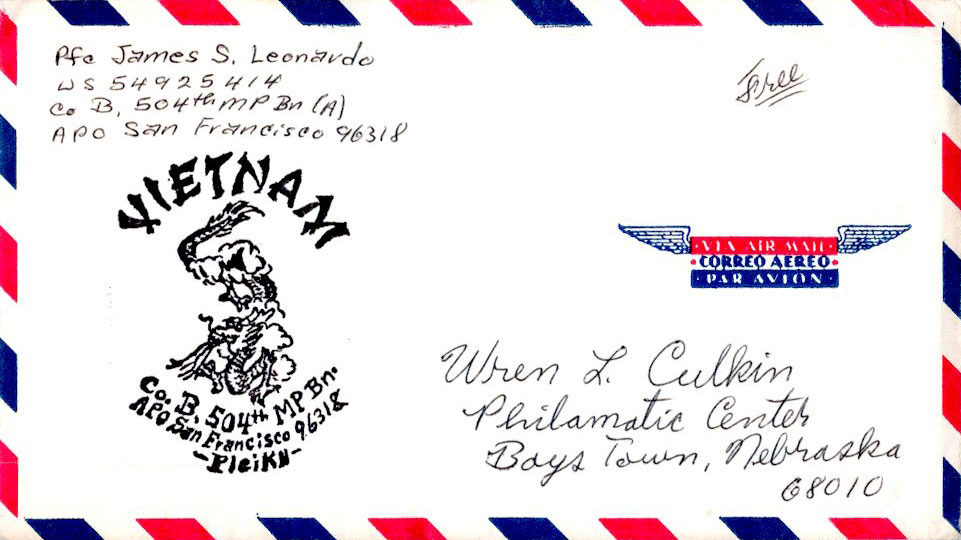 Pfc James S. Leonardo
US 54925414
Co B, 504th MP Bn (A)
APO San Francisco 96318
Free
VIETNAM
VIA AIR MAIL
CORREO AEREO
PAR AVION
Co. B, 504th MP Bn.
APO San Francisco 96318
-Pleiku-
Wren L. Culkin
Philamatic Center
Boys Town, Nebraska
68010